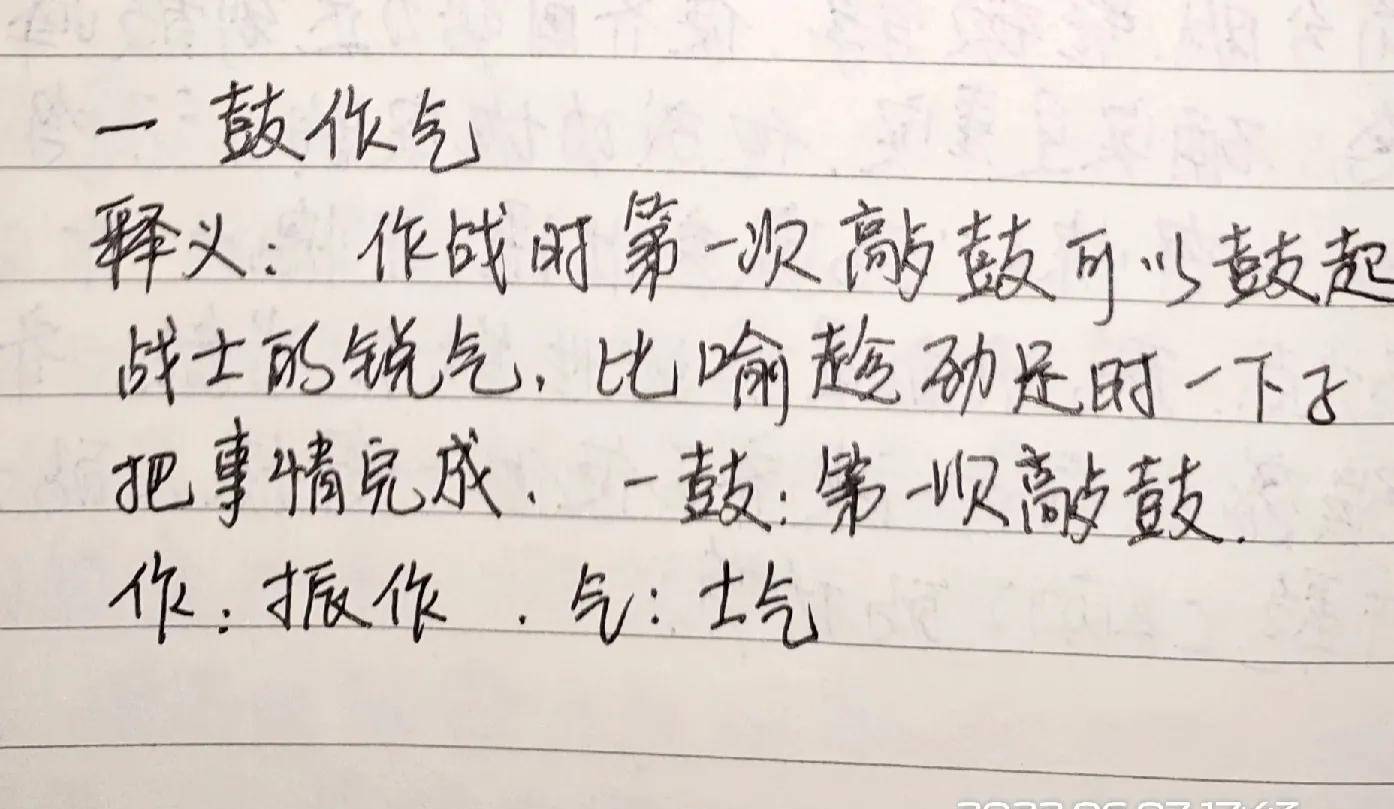 一鼓作气
释义：作战时第一次敲鼓可以鼓起
战士的锐气.比喻趁劲足时一下子
把事情完成.一鼓：第一次敲鼓.
作：振作.气：士气